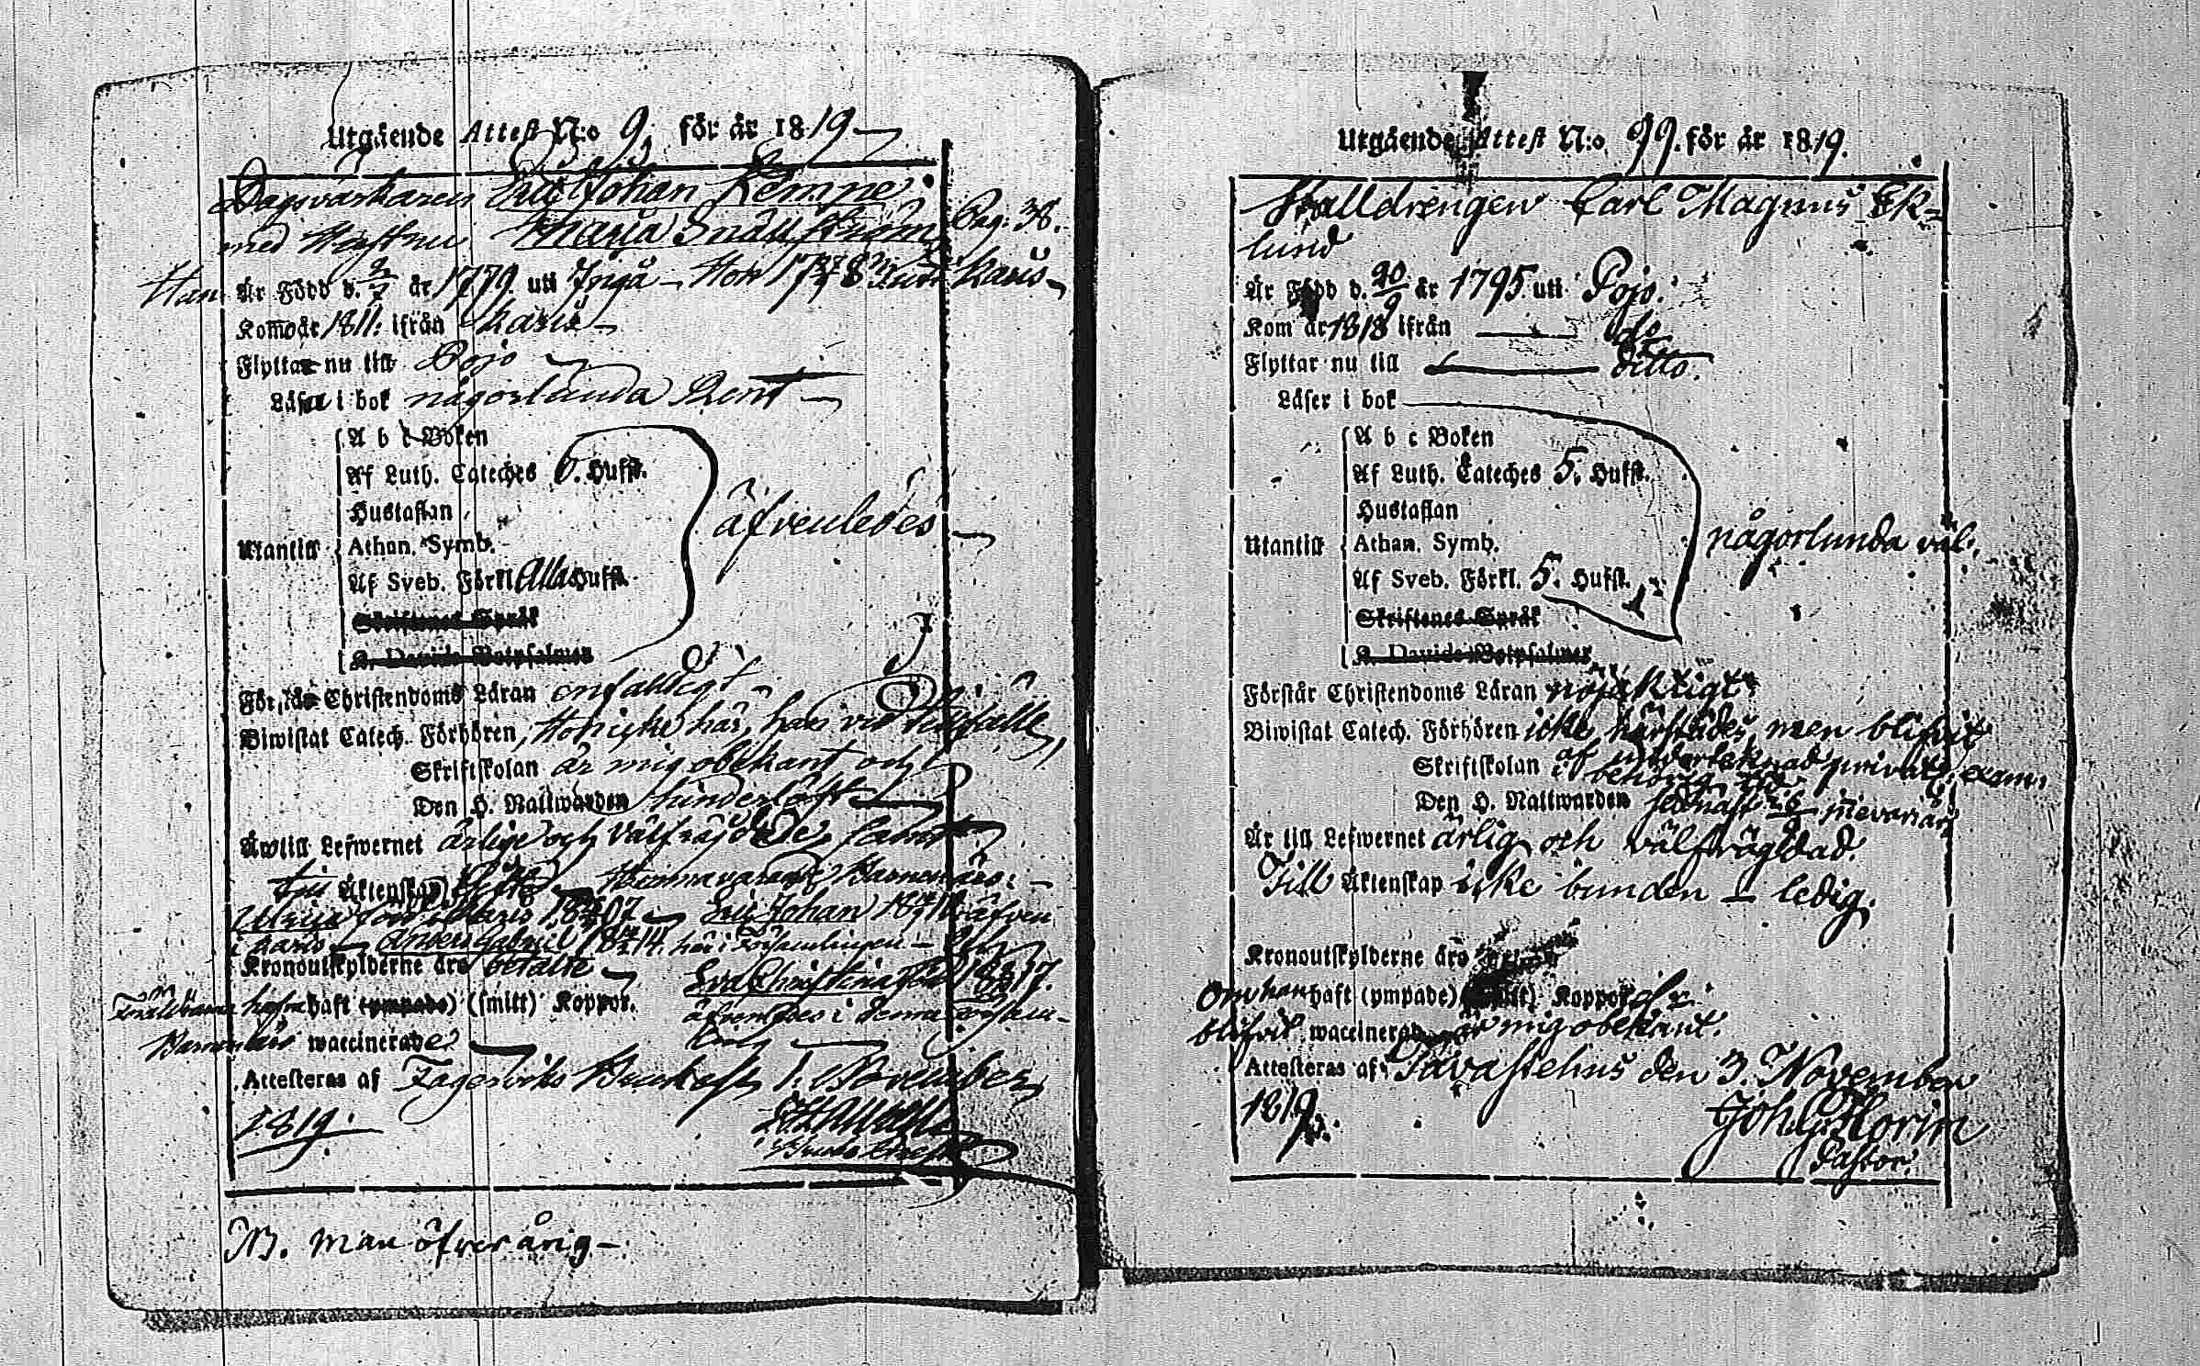 Utgående Attest N:o 9. för år 1819
Dagsvärkaren Eric Johan Kempe
med Hustrun Maria Snällström Pag. 38.
Han Är Född d. 2/7 år 1779. uti Ingå - Hon 1778 uti Karis
Kom år 1811. ifrån Karis
Flyttar nu till Pojo
Läsa i bok någorlunda Rent
A b c Boken
Af Luth. Cateches 5. Hufst.
Hustaflan
äfvenledes
Utantill Athan. Symb.
Af Sveb. Förkl. Alla Hufst.
Skriftenes Språk
K. Davids Botpsalmer
Förstå Christendoms Läran enfaldigt
Biwistat Catech. Förhören, Hon icke här, han vid tillfälle,
Skriftskolan är mig obekant och
Den H. Nattwarden
Äro till Lefwernet ärlige och välfräjdade samt
till Äktenskap Barnen äro:
Ulrica född i Karis 1807 Eric Johan 1811 äfven
i Karis Anders Gabriel 1814 här i Församlingen
Kronoutskylderne äro betalte Eva Christina född 1817.
Föräldrarne hafva haft (ympade) (smitt) Koppor. äfvenledes i denna Försam-
Barnen äro waccinerade ling
Attesteras af Fagerviks Bruk den 1. November
1819.
NB. Man öfver ång.
Utgående Attest N:o 99. för år 1819.
Stalldrengen Carl Magnus Ek=
lund
Är Född d. 20/9 år 1795. uti Pojo.
Kom år 1818 ifrån do
Flyttar nu till ditto.
Läser i bok
A b c Boken
Af Luth. Cateches 5. Hufst.
Hustaflan
någorlunda väl.
Utantill Athan. Symb.
Af Sveb. Förkl. 5. Hufst.
Skriftenes Språk
K. Davids Botpsalmer
Förstår Christendoms Läran nöjaktigt
Biwistat Catech. Förhören icke härstädes, men blifvit
Skriftskolan af undertecknad privat. exam.
behörig
Den H. Nattwarden sednast
Är till Lefwernet ärlig och välfrägdad.
Till Äktenskap icke bunden - ledig.
Kronoutskylderne äro
Om han haft (ympade) (smitt) Koppor el.
blifvit waccinerad är mig obekant.
Attesteras af Tavastehus den 3. November
1819. Joh. G. Florin
Pastor.